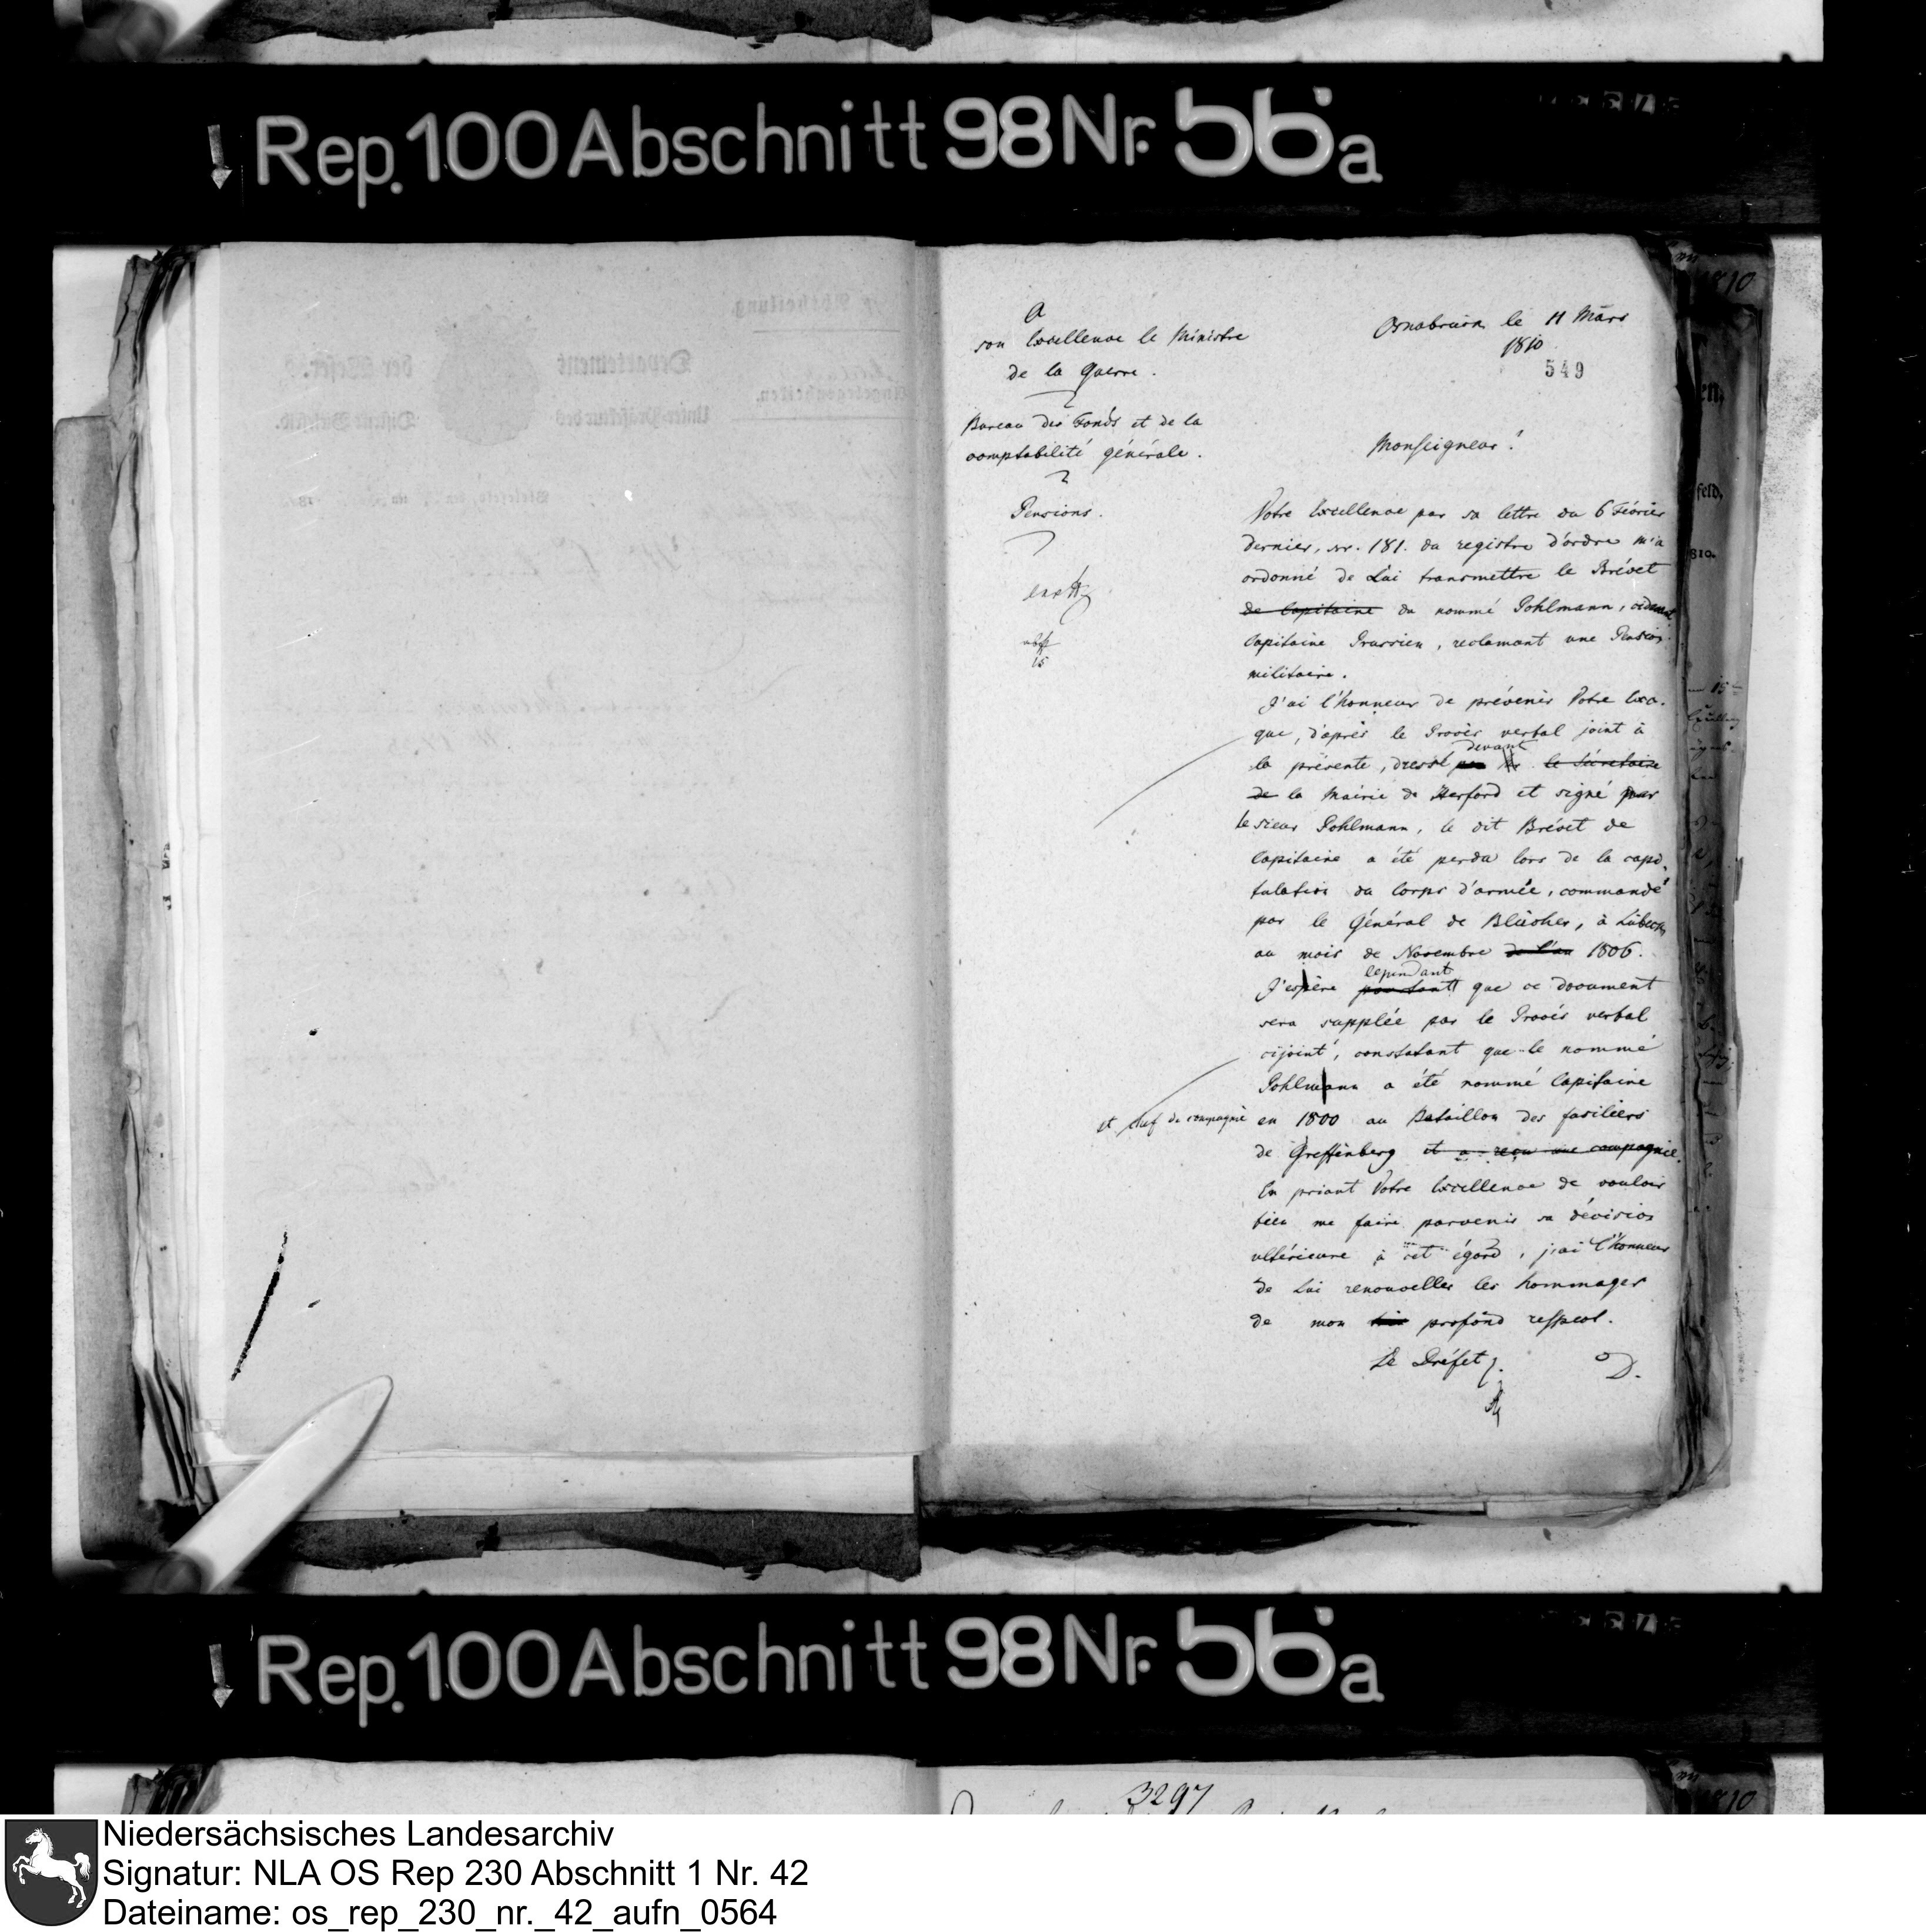 Rep. 100 Abschnitt 98 Nr. 56a
A
son Excellence le Ministre
de la Guerre.
Bureau des Fonds et de la
comptabilité générale.
Pensions.
Osnabruck le 11 Mars
1810
549
Monseigneur!
Votre Excellence par sa lettre du 6 Février
dernier, nr. 181. du registre d'ordre m'a
ordonné de Lui transmettre le Brévet
de Capitaine du nommé Pohlmann, cidevant
Capitaine Prussien, reclamant une Pension
militaire.
J'ai l'honneur de prévenir Votre Exc.
que, d'après le Procès verbal joint à
devant
la présente, dressé par le Sécretaire
de la Mairie de Herford et signé par
le sieur Pohlmann, le dit Brévet de
Capitaine a été perdu lors de la capi-
tulation du Corps d'armée, commandé
par le Général de Blücher, à Lübeck,
au mois de Novembre de l'an 1806.
cependant
J'espère pourtant que ce document
sera supplée par le Procès verbal
cijoint, constatant que le nommé
Pohlmann a été nommé Capitaine
et chef de compagnie
en 1800 au Bataillon des fusiliers
de Greffenberg et a reçu une compagnie.
En priant Votre Excellence de vouloir
bien me faire parvenir sa décision
ultérieure à cet égard, j'ai l'honneur
de Lui renouveller les hommages
de mon profond respect.
Le Préfet
D.
10
en.
feld,
810.
Rep. 100 Abschnitt 98 Nr. 56a
3297
10
Niedersächsisches Landesarchiv
Signatur: NLA OS Rep 230 Abschnitt 1 Nr. 42
Dateiname: os_rep_230_nr._42_aufn_0564